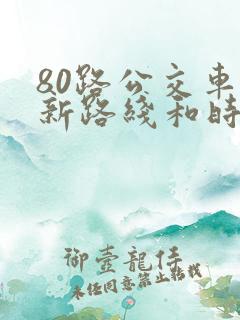 80路公交车
新路线和时
御壹龍仹
未经同意禁止转载